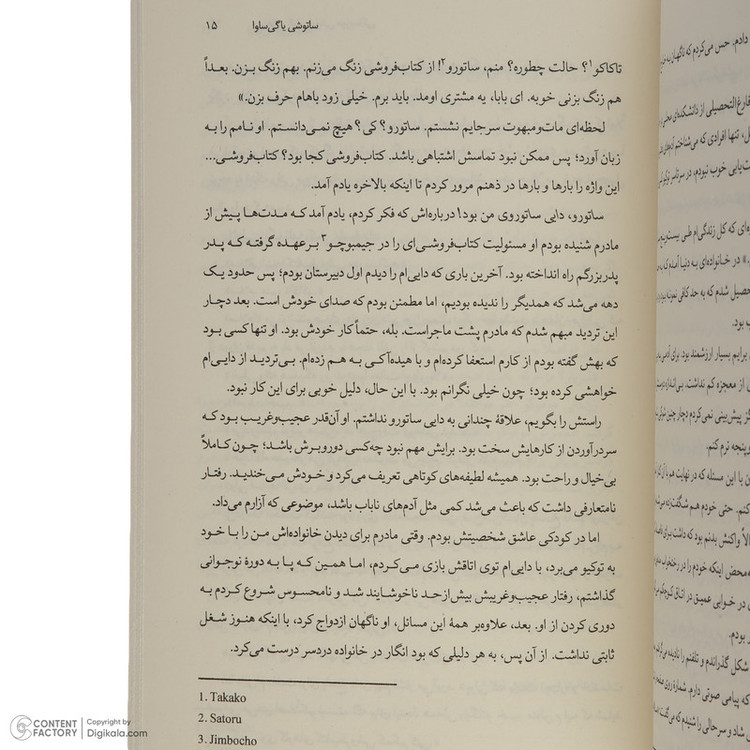 ساتوشی یاگی‌ساوا ۱۵
تاکاکو۱؟ حالت چطوره؟ منم، ساتورو۲! از کتاب‌فروشی زنگ می‌زنم. بهم زنگ بزن. بعداً
هم زنگ بزنی خوبه. ای بابا، یه مشتری اومد. باید برم. خیلی زود باهام حرف بزن.»
لحظه‌ای مات‌ومبهوت سرجایم نشستم. ساتورو؟ کی؟ هیچ نمی‌دانستم. او نامم را به
زبان آورد؛ پس ممکن نبود تماسش اشتباهی باشد. کتاب‌فروشی کجا بود؟ کتاب‌فروشی...
این واژه را بارها و بارها در ذهنم مرور کردم تا اینکه بالاخره یادم آمد.
ساتورو، دایی ساتوروی من بود! درباره‌اش که فکر کردم، یادم آمد که مدت‌ها پیش از
مادرم شنیده بودم او مسئولیت کتاب‌فروشی‌ای را در جیمبوچو۳ برعهده گرفته که پدر
پدربزرگم راه انداخته بود. آخرین باری که دایی‌ام را دیدم اول دبیرستان بودم؛ پس حدود یک
دهه می‌شد که همدیگر را ندیده بودیم، اما مطمئن بودم که صدای خودش است. بعد دچار
این تردید مبهم شدم که مادرم پشت ماجراست. بله، حتماً کار خودش بود. او تنها کسی بود
که بهش گفته بودم از کارم استعفا کرده‌ام و با هیده‌آکی به هم زده‌ام. بی‌تردید از دایی‌ام
خواهشی کرده بود؛ چون خیلی نگرانم بود. با این حال، دلیل خوبی برای این کار نبود.
راستش را بگویم، علاقهٔ چندانی به دایی ساتورو نداشتم. او آن‌قدر عجیب‌وغریب بود که
سردرآوردن از کارهایش سخت بود. برایش مهم نبود چه‌کسی دوروبرش باشد؛ چون کاملاً
بی‌خیال و راحت بود. همیشه لطیفه‌های کوتاهی تعریف می‌کرد و خودش می‌خندید. رفتار
نامتعارفی داشت که باعث می‌شد کمی مثل آدم‌های ناباب باشد، موضوعی که آزارم می‌داد.
اما در کودکی عاشق شخصیتش بودم. وقتی مادرم برای دیدن خانواده‌اش من را با خود
به توکیو می‌برد، با دایی‌ام توی اتاقش بازی می‌کردم، اما همین که پا به دورهٔ نوجوانی
گذاشتم، رفتار عجیب‌وغریبش بیش‌ازحد ناخوشایند شد و نامحسوس شروع کردم به
دوری کردن از او. بعد، علاوه‌بر همهٔ این مسائل، او ناگهان ازدواج کرد، با اینکه هنوز شغل
ثابتی نداشت. از آن پس، به هر دلیلی که بود انگار در خانواده دردسر درست می‌کرد.
1. Takako
2. Satoru
3. Jimbocho
CONTENT FACTORY
Copyright by
Digikala.com